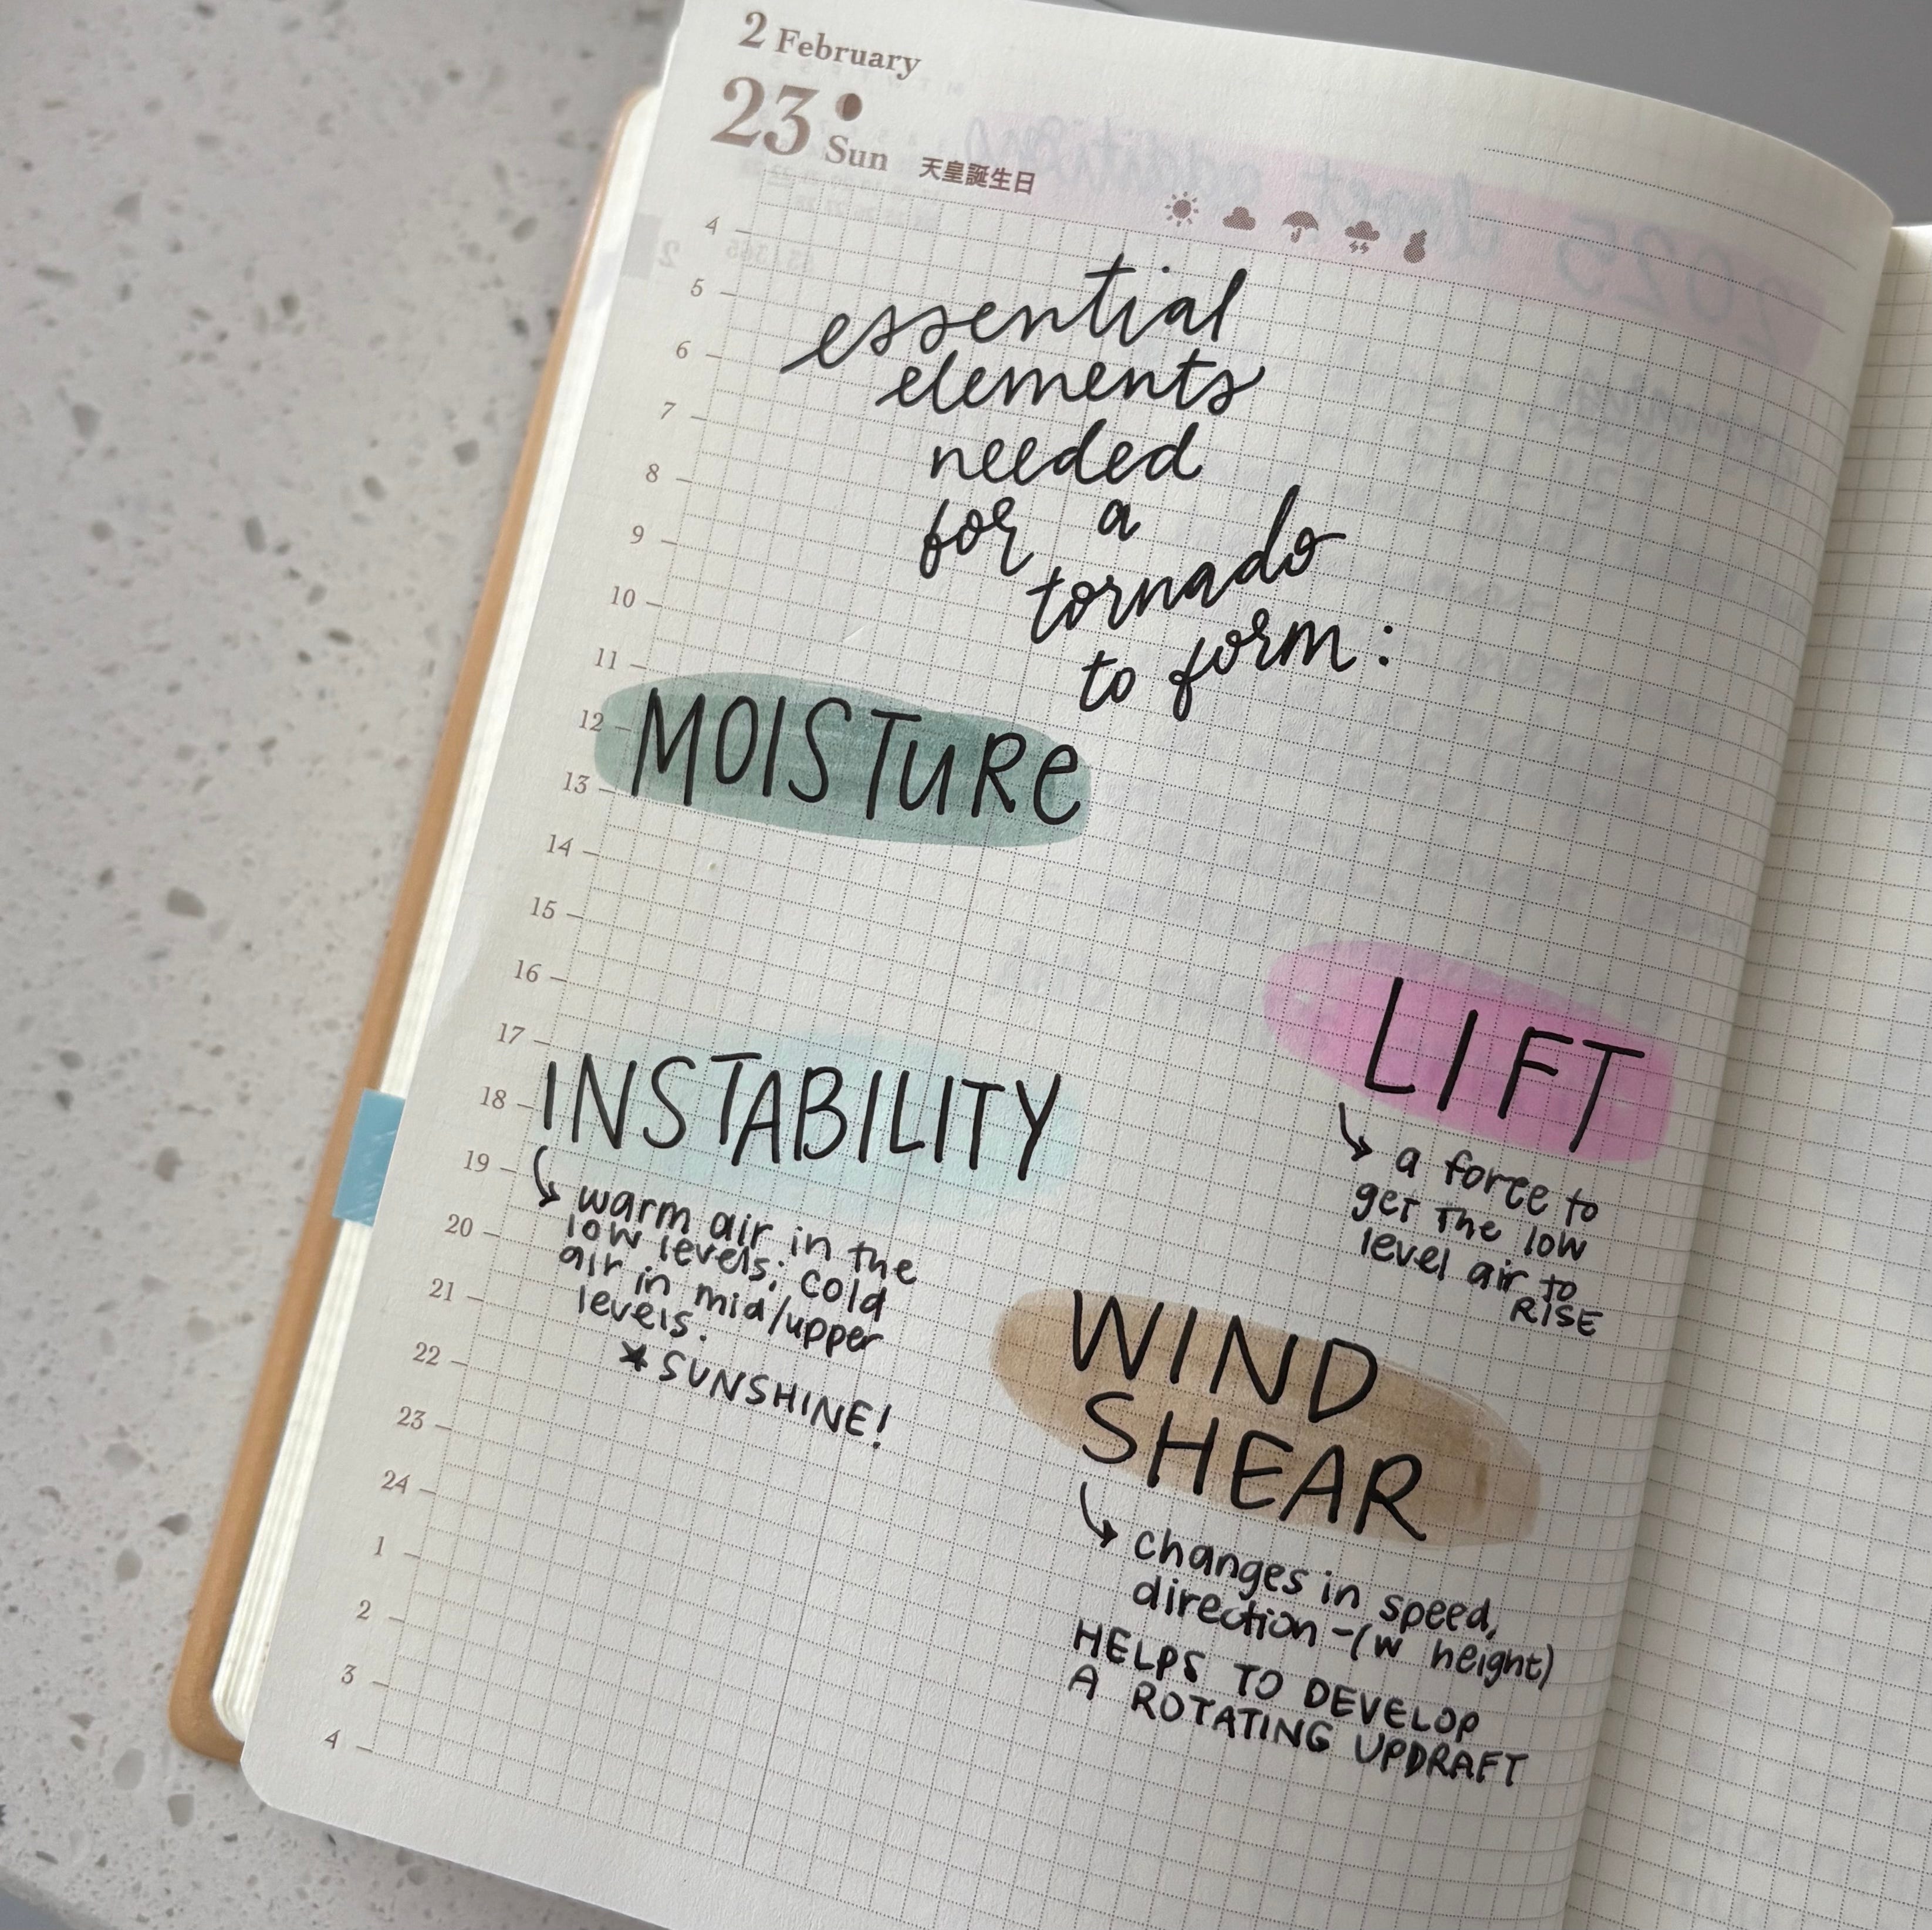 2 February
23 Sun 天皇誕生日
essential
elements
needed
for a
tornado
to form:
MOISTURE
LIFT
a force to
get the low
level air to
RISE
INSTABILITY
warm air in the
low levels; cold
air in mid/upper
levels.
* SUNSHINE!
WIND
SHEAR
changes in speed,
direction - (w height)
HELPS TO DEVELOP
A ROTATING UPDRAFT
4
5
6
7
8
9
10
11
12
13
14
15
16
17
18
19
20
21
22
23
24
1
2
3
4